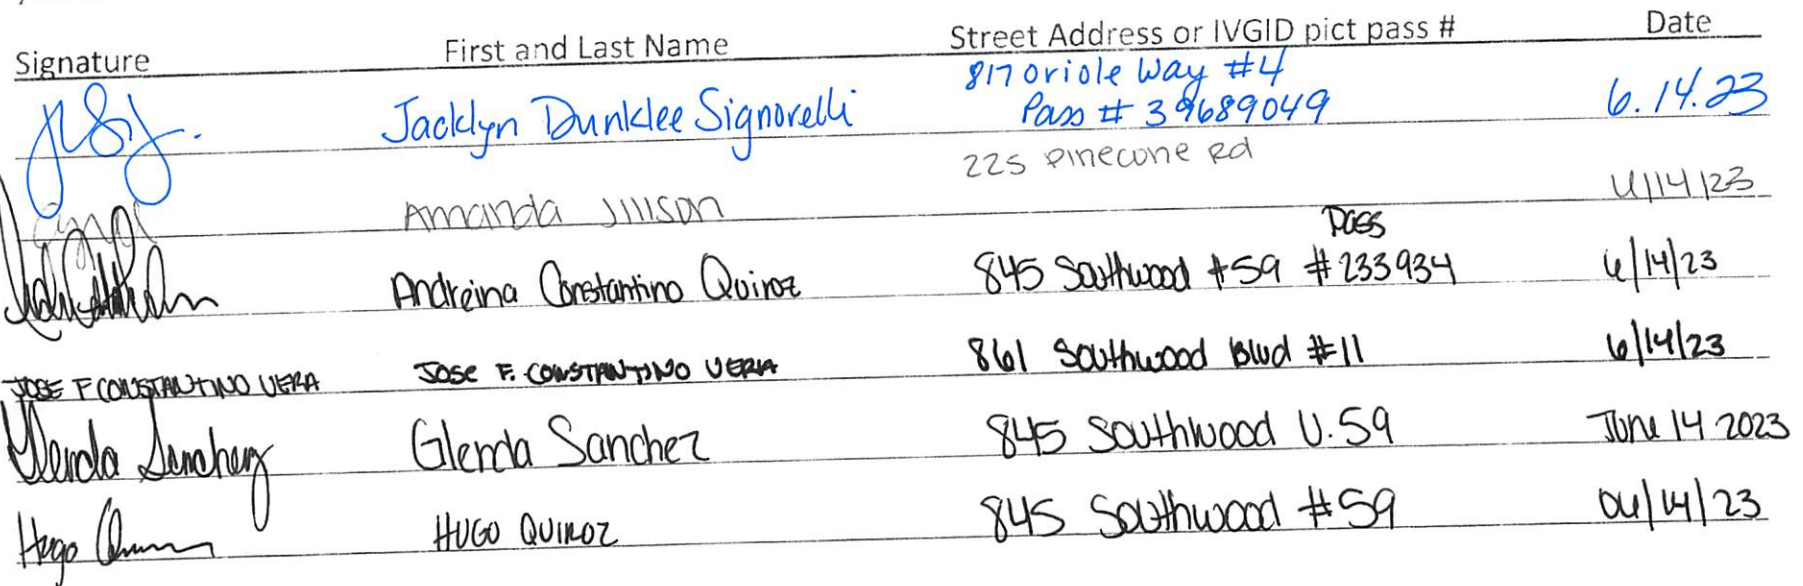 Signature First and Last Name Street Address or IVGID pict pass # Date
817 Oriole Way #4
Jacklyn Dunklee Signorelli Pass # 39689049 6.14.23
225 Pinecone Rd
Amanda Jllison 6/14/23
Pass
Andreina Constantino Quiroz 845 Southwood #59 #233934 6/14/23
JOSE F CONSTANTINO VERA JOSE F. CONSTANTINO VERA 861 Southwood Blvd #11 6/14/23
Glenda Sanchez Glenda Sanchez 845 Southwood U.59 June 14 2023
Hugo HUGO QUIROZ 845 Southwood #59 06/14/23